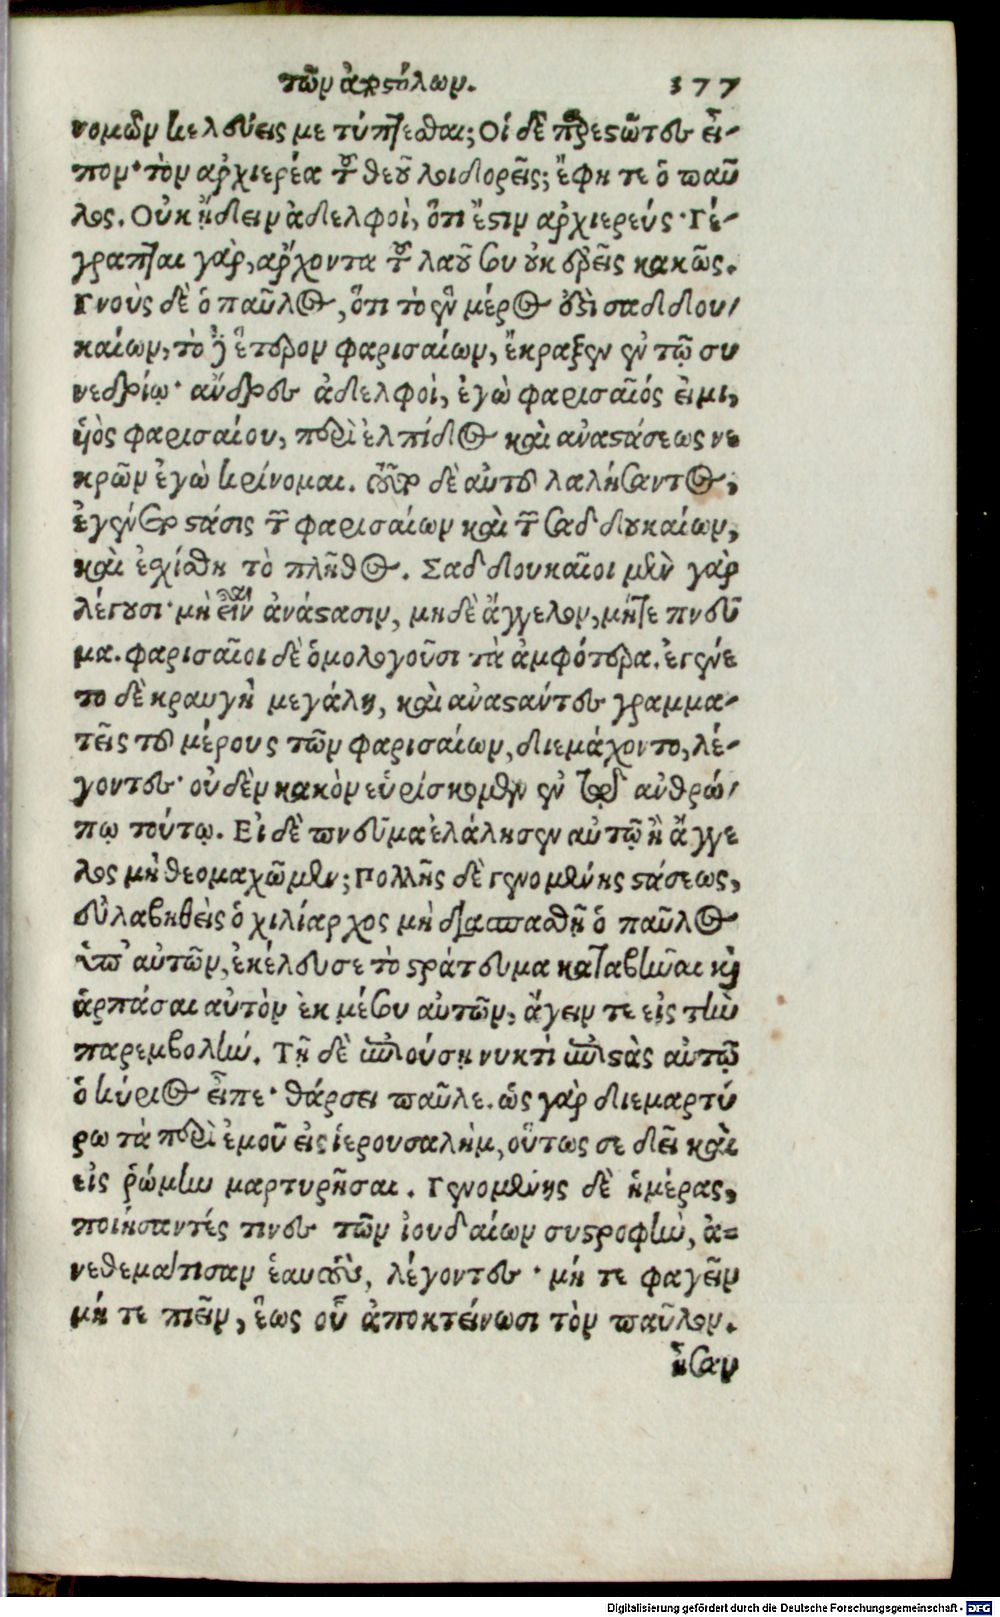 τῶν ἀποστόλων. 377
νομῶν κελεύεις με τύπτεσθαι; Οἱ δὲ παρεστῶτες εἶ-
πον· τὸν ἀρχιερέα τοῦ θεοῦ λοιδορεῖς; ἔφη τε ὁ παῦ
λος. Οὐκ ᾔδειν ἀδελφοὶ, ὅτι ἔστιν ἀρχιερεύς· Γέ-
γραπται γὰρ, ἄρχοντα τοῦ λαοῦ σου οὐκ ἐρεῖς κακῶς.
Γνοὺς δὲ ὁ παῦλος, ὅτι τὸ ἓν μέρος ἐστὶ σαδδου/
καίων, τὸ δὲ ἕτερον φαρισαίων, ἔκραξεν ἐν τῷ συ
νεδρίῳ· ἄνδρες ἀδελφοὶ, ἐγὼ φαρισαῖός εἰμι,
ὑιὸς φαρισαίου, περὶ ἐλπίδος καὶ ἀναστάσεως νε
κρῶν ἐγὼ κρίνομαι. τοῦτο δὲ αὐτοῦ λαλήσαντος,
ἐγένετο στάσις τῶν φαρισαίων καὶ τῶν σαδδουκαίων,
καὶ ἐσχίσθη τὸ πλῆθος. Σαδδουκαῖοι μὲν γὰρ
λέγουσι· μὴ εἶναι ἀνάστασιν, μηδὲ ἄγγελον, μήτε πνεῦ
μα. φαρισαῖοι δὲ ὁμολογοῦσι τὰ ἀμφότερα. ἐγένε
το δὲ κραυγὴ μεγάλη, καὶ ἀναστάντες γραμμα-
τεῖς τοῦ μέρους τῶν φαρισαίων, διεμάχοντο, λέ-
γοντες· οὐδὲν κακὸν εὑρίσκομεν ἐν τῷ ἀνθρώ/
πῳ τούτῳ. Εἰ δὲ πνεῦμα ἐλάλησεν αὐτῷ ἢ ἄγγε
λος μὴ θεομαχῶμεν; Πολλῆς δὲ γενομένης στάσεως,
εὐλαβηθεὶς ὁ χιλίαρχος μὴ διασπασθῇ ὁ παῦλος
ὑπ' αὐτῶν, ἐκέλευσε τὸ στράτευμα καταβῆναι καὶ
ἁρπάσαι αὐτὸν ἐκ μέσου αὐτῶν, ἄγειν τε εἰς τὴν
παρεμβολήν. Τῇ δὲ ἐπιούσῃ νυκτὶ ἐπιστὰς αὐτῷ
ὁ κύριος εἶπε· θάρσει παῦλε. ὡς γὰρ διεμαρτύ
ρω τὰ περὶ ἐμοῦ εἰς ἱερουσαλὴμ, οὕτως σε δεῖ καὶ
εἰς ῥώμην μαρτυρῆσαι. Γενομένης δὲ ἡμέρας,
ποιήσαντές τινες τῶν ἰουδαίων συστροφὴν, ἀ-
νεθεμάτισαν ἑαυτοὺς, λέγοντες· μή τε φαγεῖν
μή τε πιεῖν, ἕως οὗ ἀποκτείνωσι τὸν παῦλον.
ἦσαν
Digitalisierung gefördert durch die Deutsche Forschungsgemeinschaft - DFG